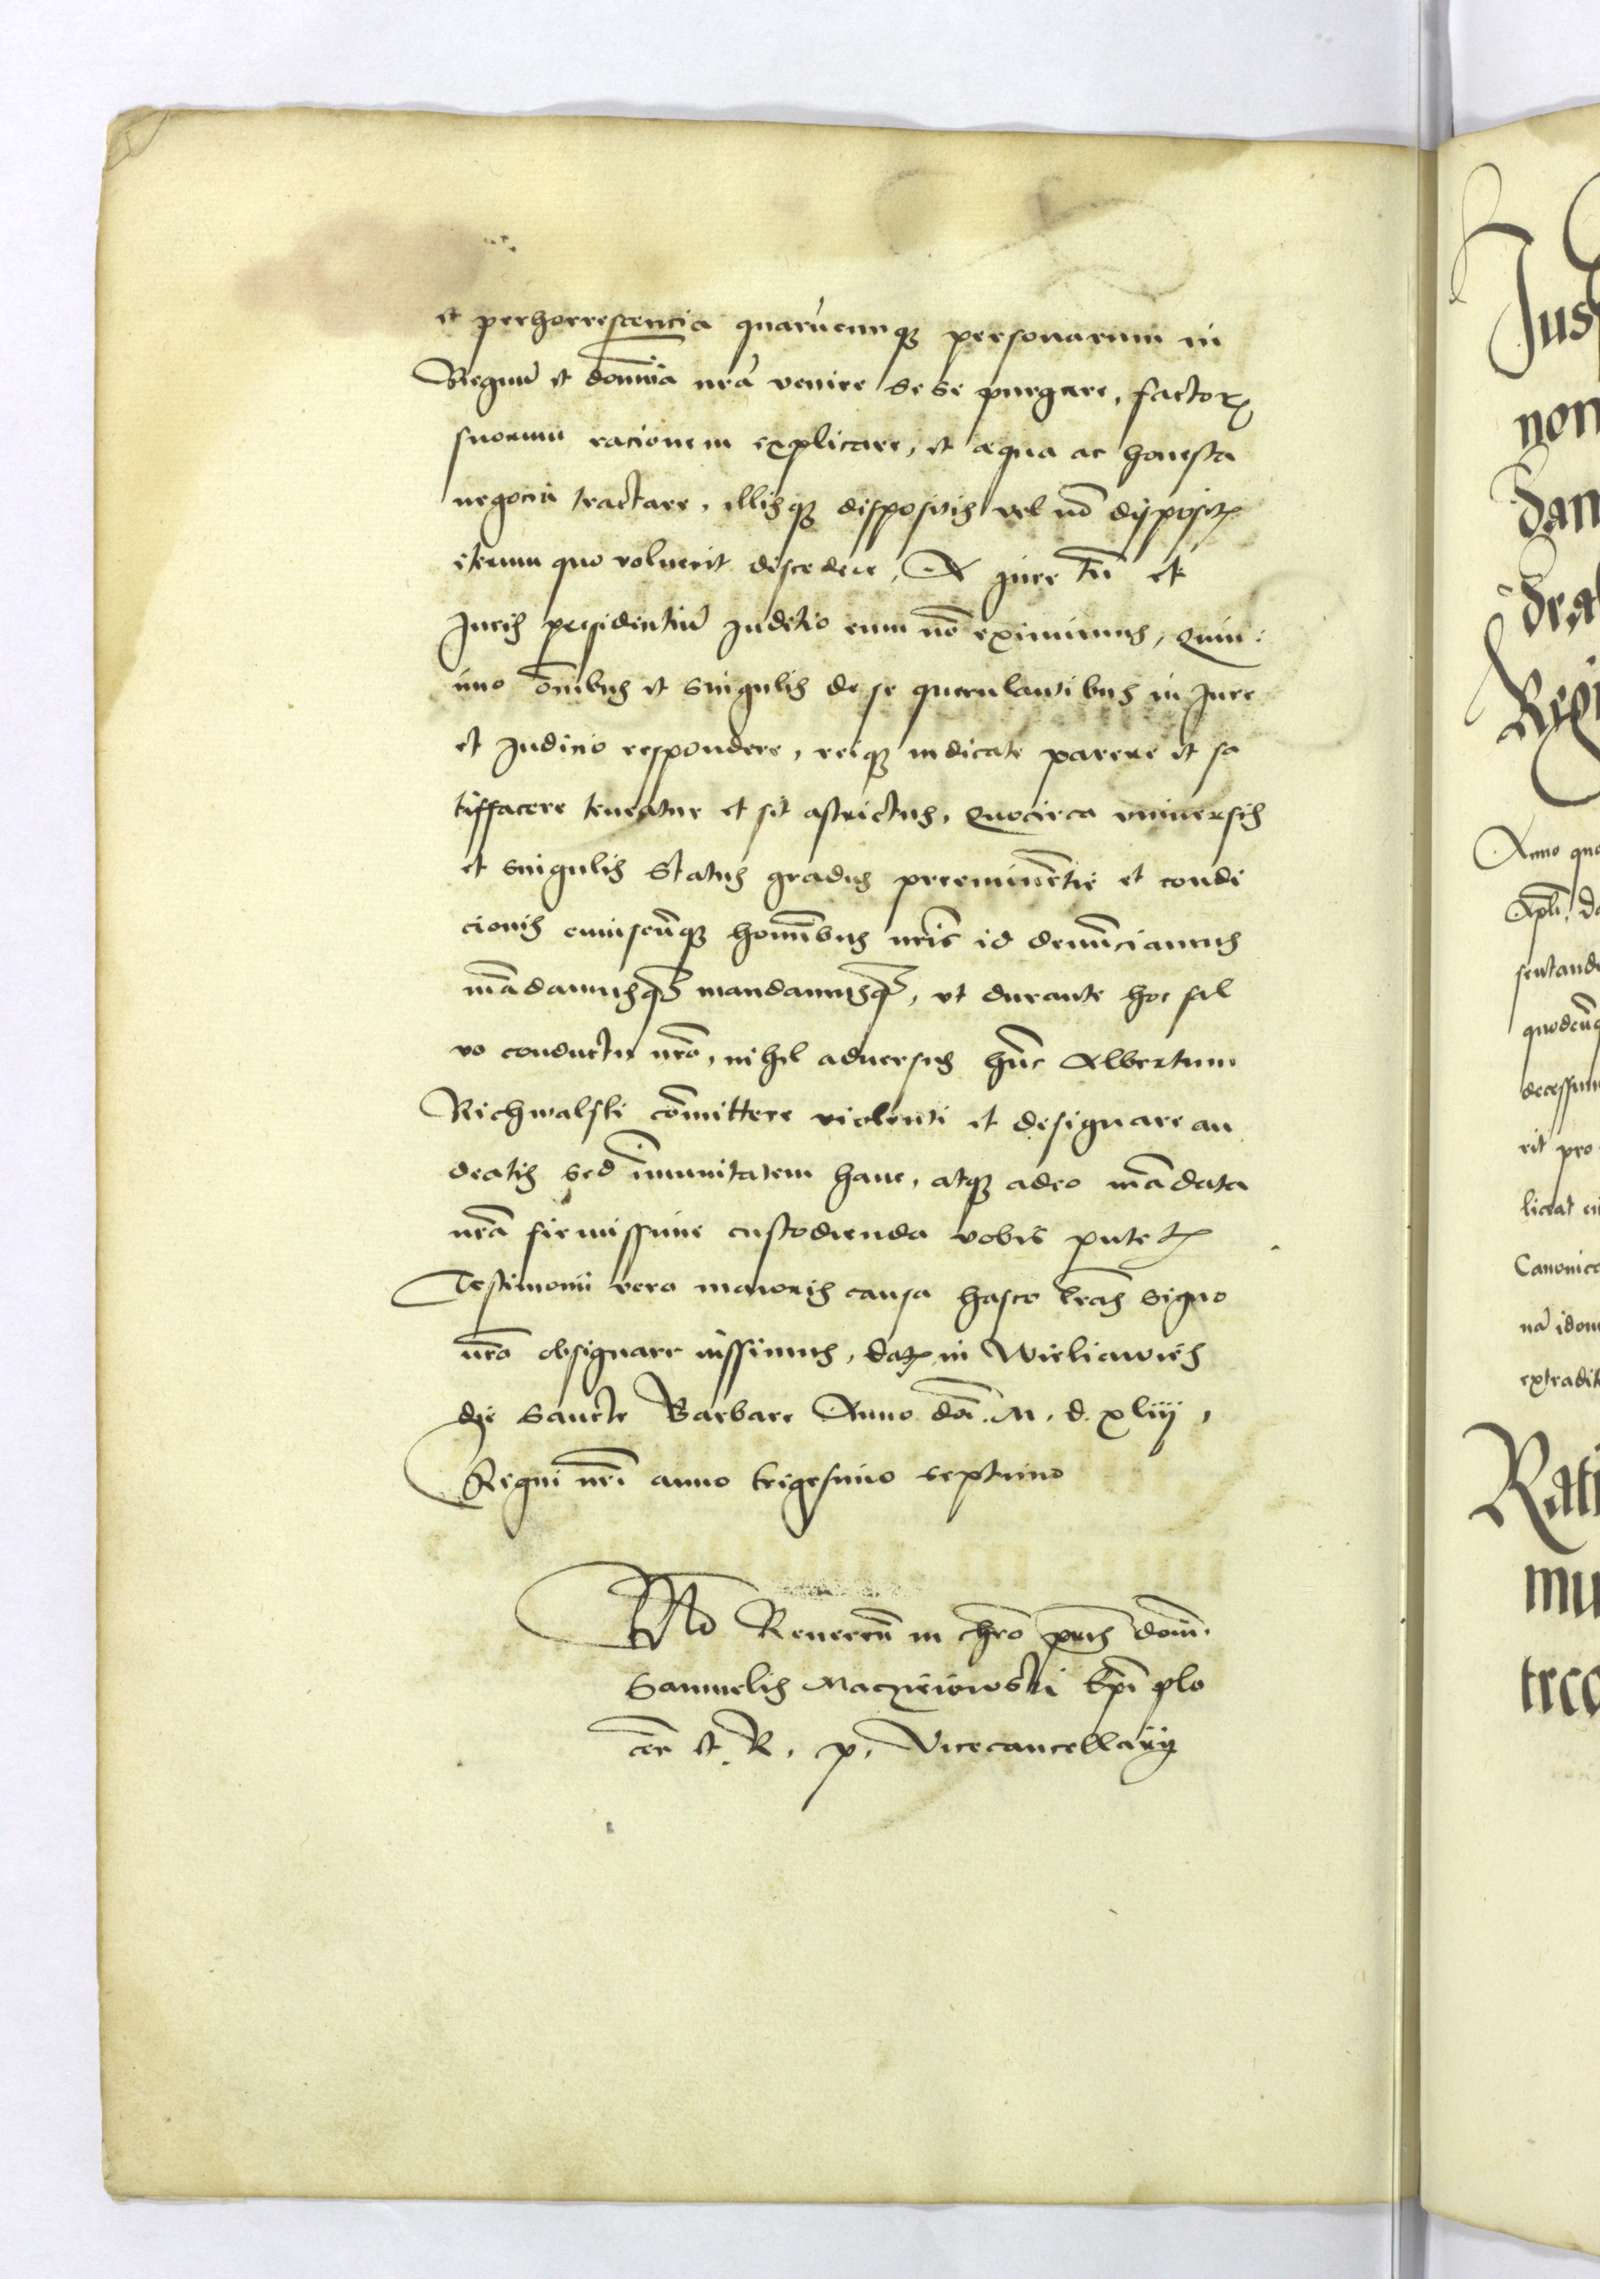 et perhorrescencia quarũcunq; personarum in
Regnũ et domĩa nrã venire se se purgare, factorꝫ
suorum racionem explicare, et aequa ac honesta
negocia tractare, illisq; dispositis vel nõ dispositꝫ
iterum quo voluerit discedere, A jure tñ et
Juris presidentiũ Juditio eum nõ eximimus, Quin
imo õnibus et singulis de se querulantibus in Jure
et Judicio respondere, reiq; iudicate parere et sa
tisfacere teneatur et sit astrictus, Quocirca universis
et singulis status gradus preeminẽtie et condi
cionis cuiuscũq; hominibus nris id denũciamus
mãdamusq; mandamusq;, ut durante hoc sal
vo conductu nrõ, nihil adversus hũc Albertum
Richwalski cõmittere violenti et designare au
deatis sed ĩmunitatem hanc, atq; adeo mãdata
nrã firmissime custodienda vobis putetꝫ
Testimonii vero maioris causa hasce lrãs signo
nrõ obsignare iussimus, datꝫ in Wieliawies
die Sancte Barbare Anno dñi. M. d. xliij,
Regni nri anno trigesimo septimo
Ad Reverēn in chrõ pris dom̃.
Samuelis Maczieiowski Epĩ plo
cen et R. p. Vicecancellarij
Jus
non
dan
Regi
Anno quo
Apli, da
sentand
quodcũq
decessum
rit pro
liceat ei
Canonico
nã idon
extradit
Rati
mu